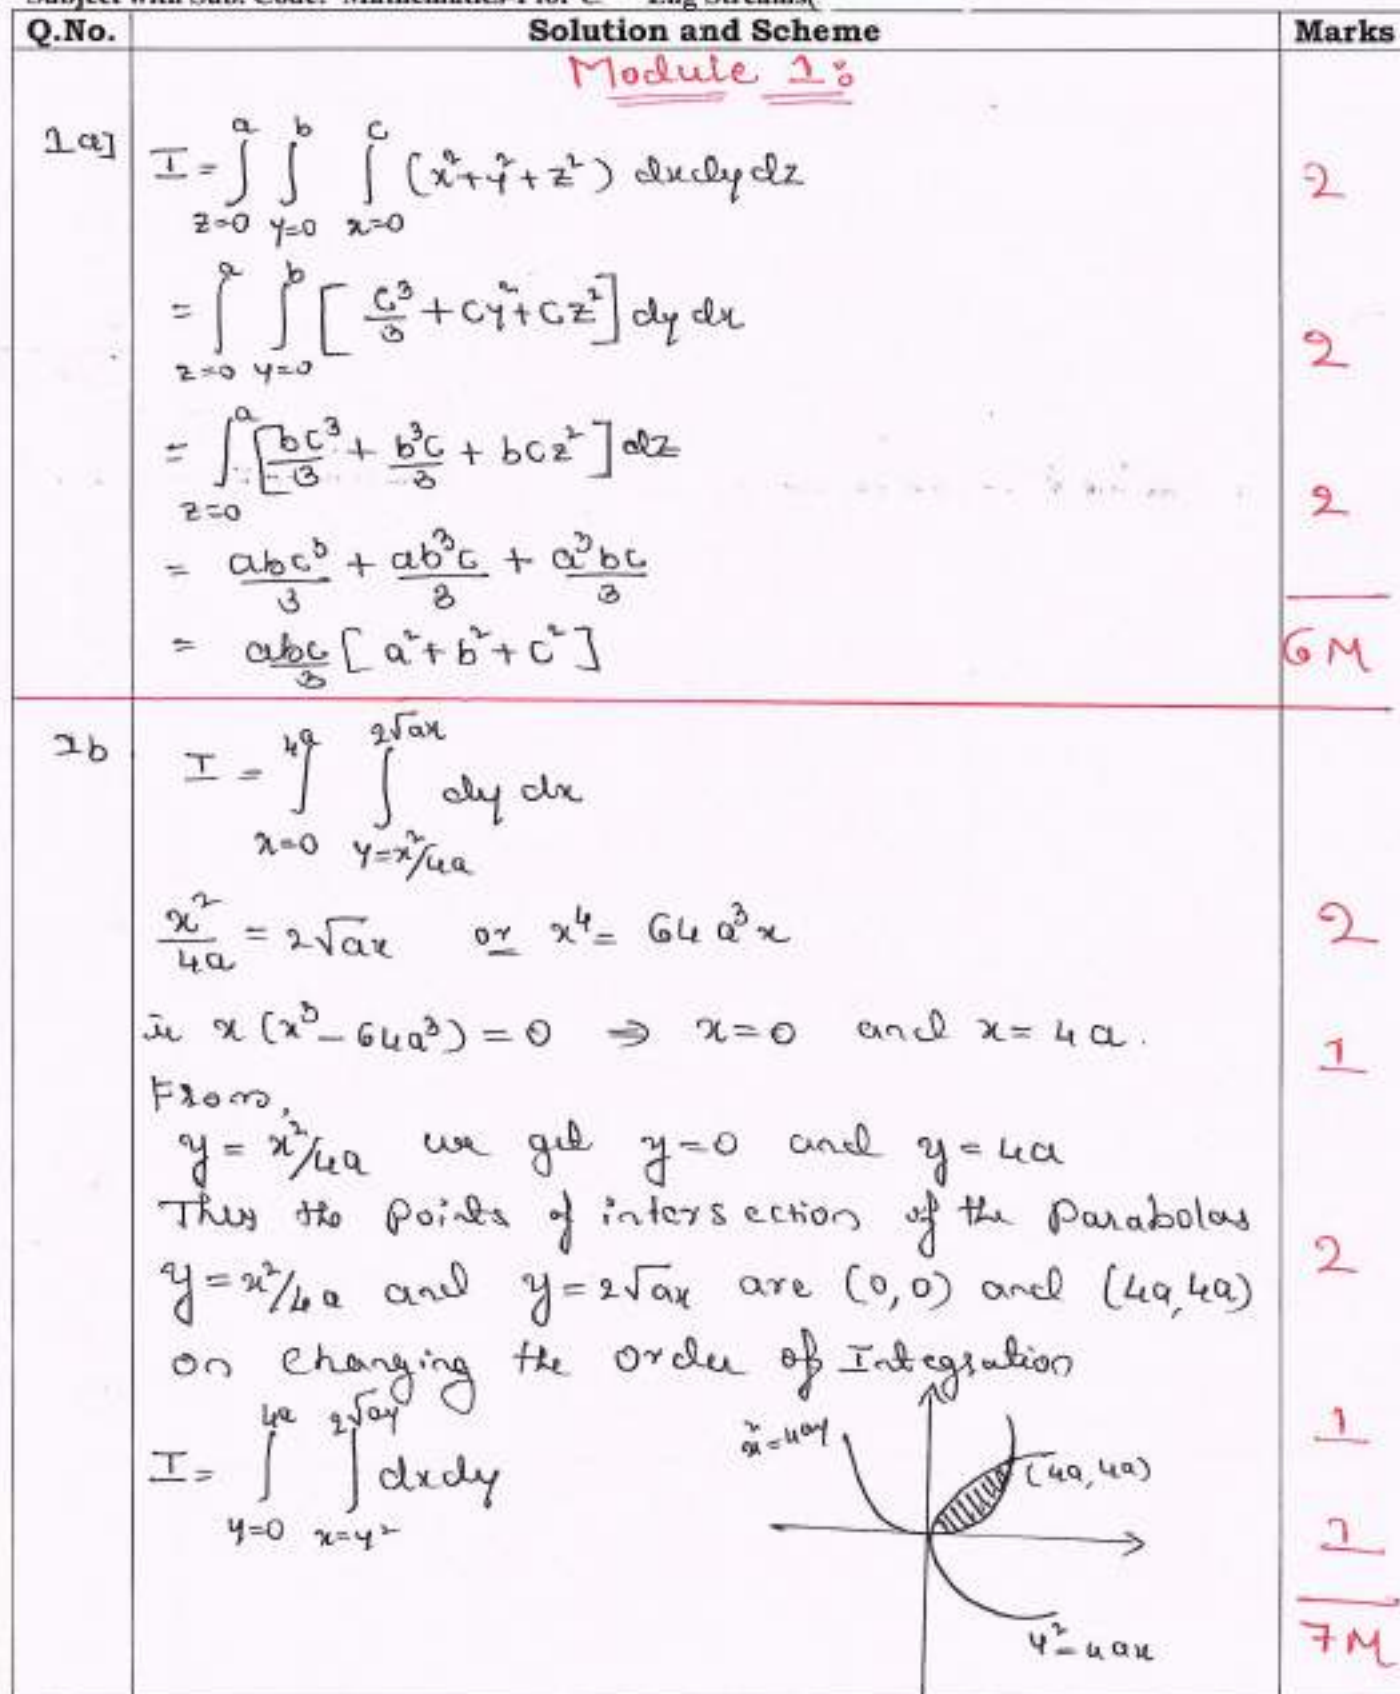 Q.No. Solution and Scheme Marks
Module 1:
1a] I = ∫_{z=0}^{a} ∫_{y=0}^{b} ∫_{x=0}^{c} (x²+y²+z²) dxdydz 2
= ∫_{z=0}^{a} ∫_{y=0}^{b} [c³/3 + cy² + cz²] dy dx 2
= ∫_{z=0}^{a} [bc³/3 + b³c/3 + bcz²] dz 2
= abc³/3 + ab³c/3 + a³bc/3
= abc/3 [a²+b²+c²] 6M
1b I = ∫_{x=0}^{4a} ∫_{y=x²/4a}^{2√ax} dy dx
x²/4a = 2√ax or x⁴= 64a³x 2
ie x(x³-64a³) = 0 ⇒ x=0 and x= 4a. 1
From,
y = x²/4a we get y=0 and y=4a
Thus the points of intersection of the Parabolas
y=x²/4a and y=2√ax are (0,0) and (4a,4a) 2
on changing the order of Integration
I= ∫_{y=0}^{4a} ∫_{x=y²}^{2√ay} dxdy 1
x²=4ay
(4a,4a)
1
y²=4ax
7M